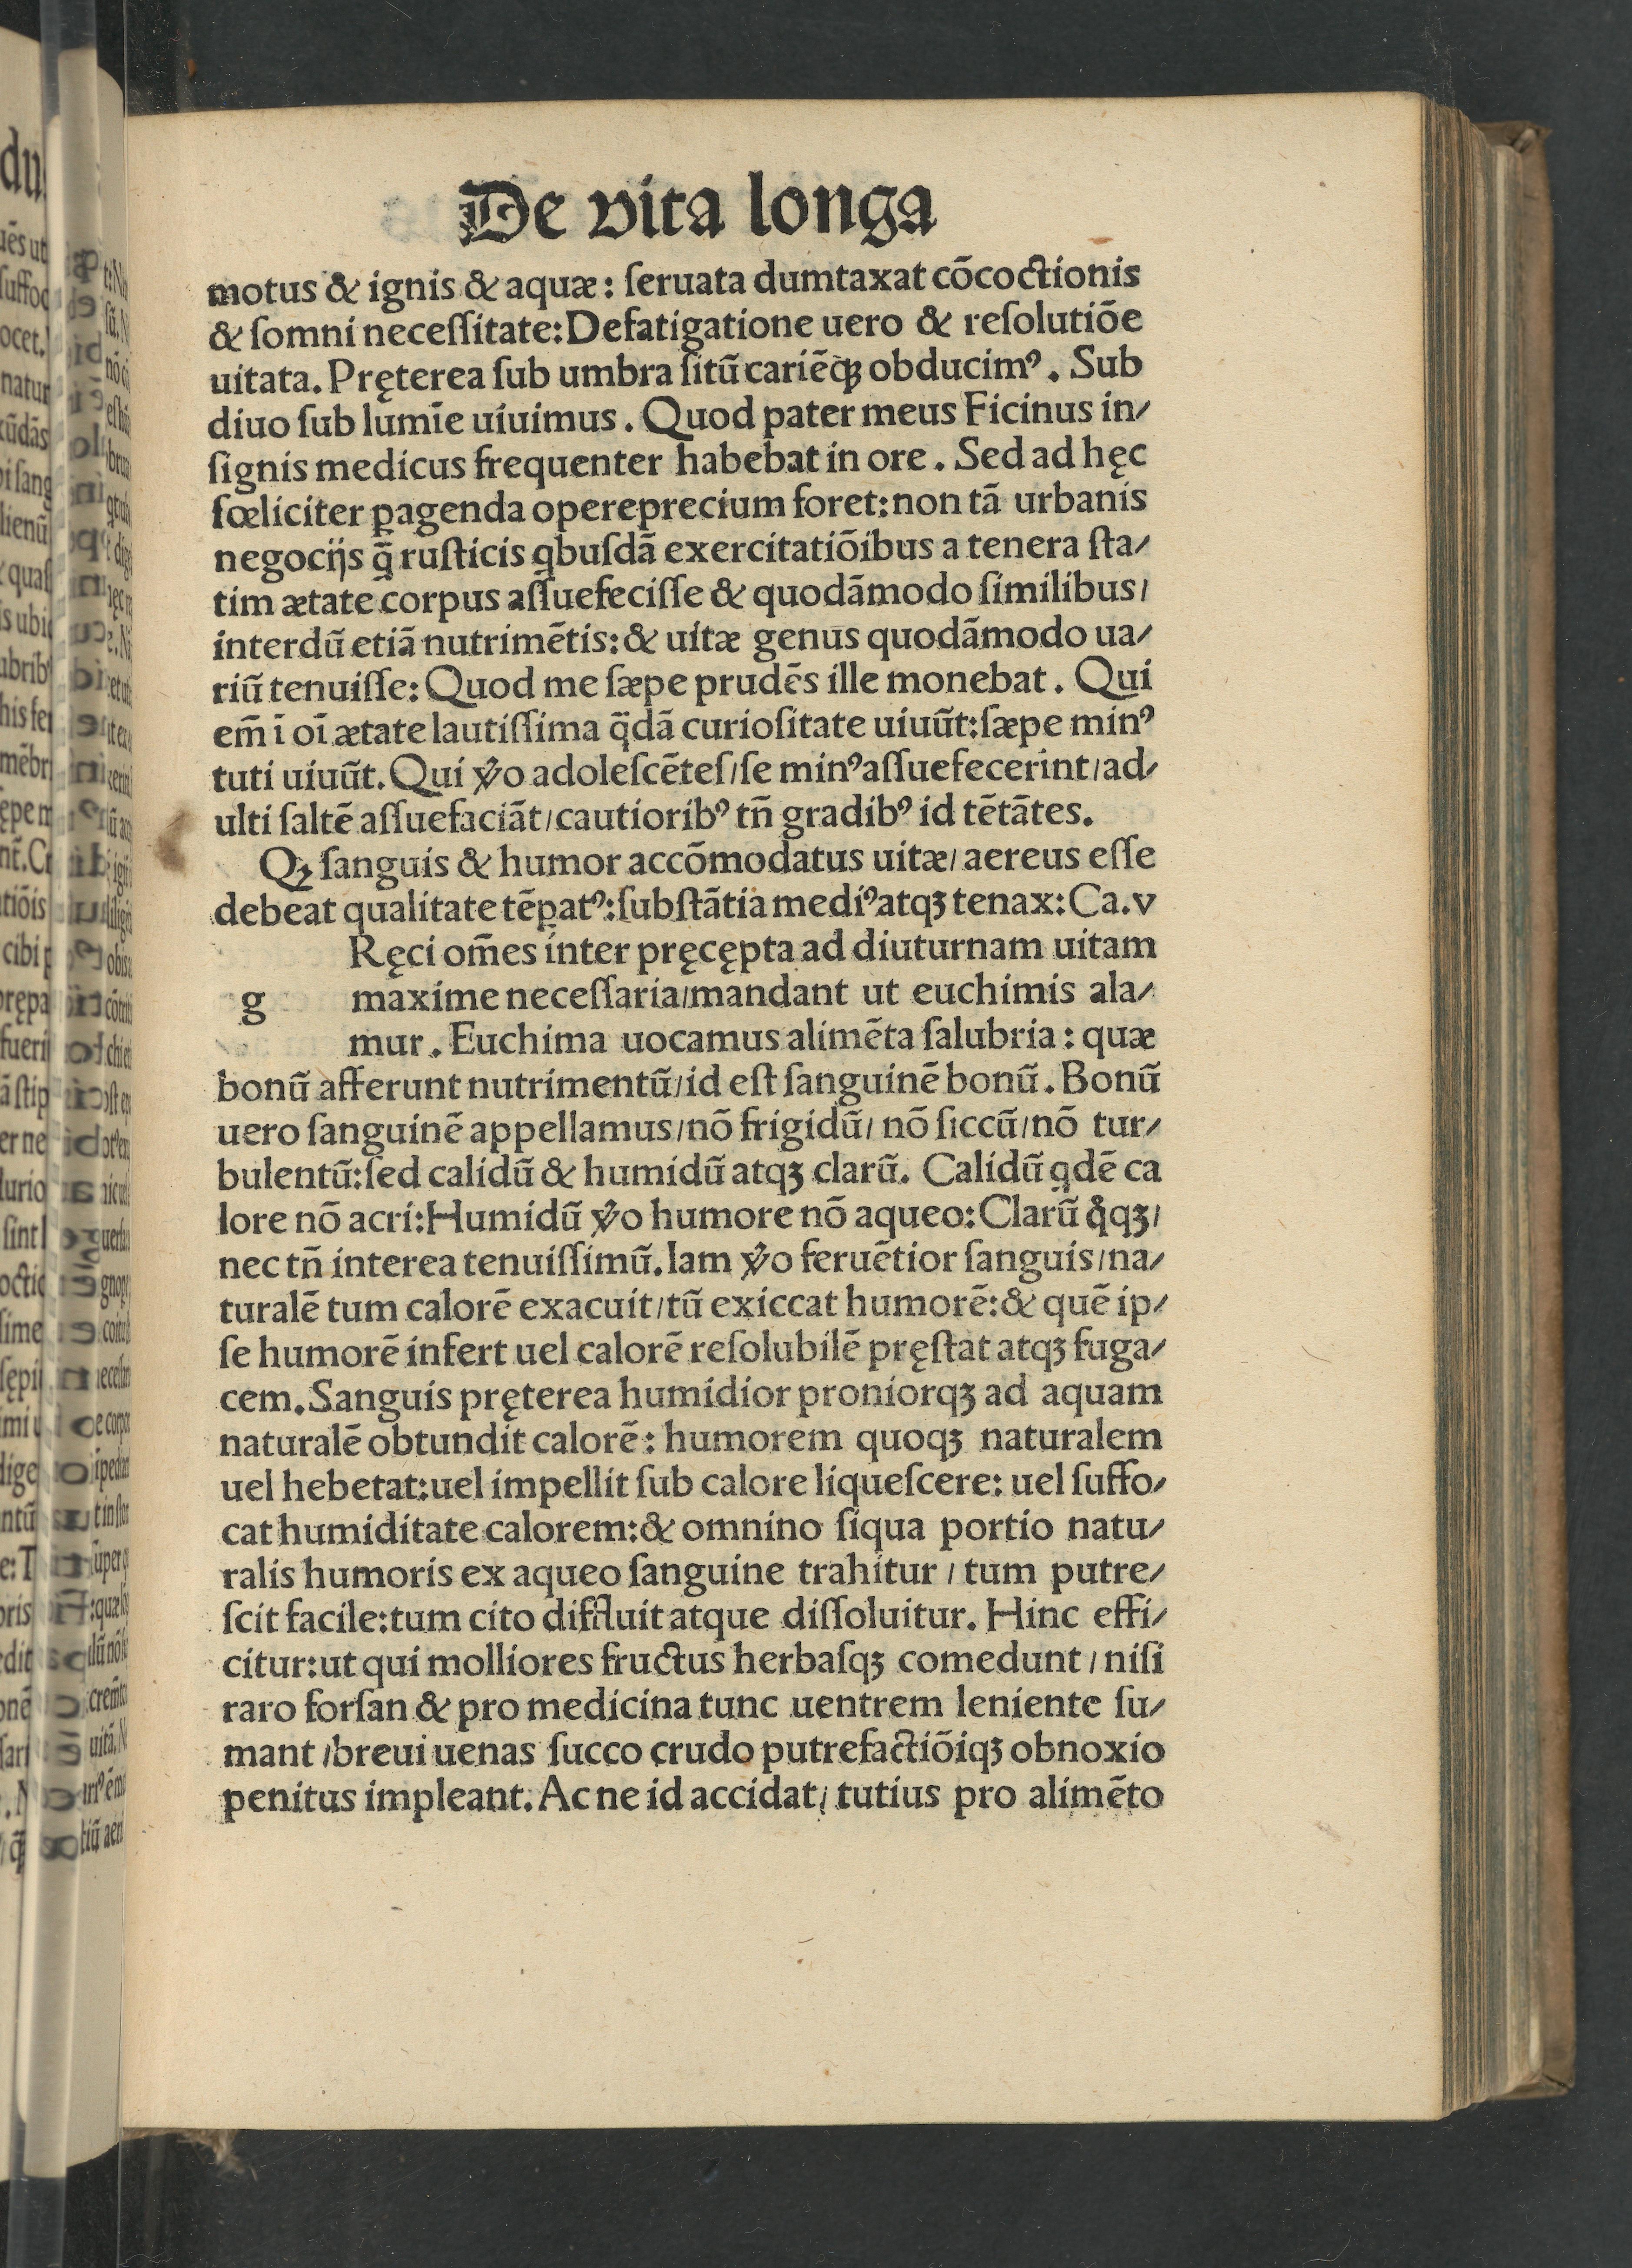 De vita longa
motus & ignis & aquæ: ſeruata dumtaxat cōcoctionis
& ſomni neceſſitate: Defatigatione uero & reſolutiōe
uitata. Pręterea ſub umbra ſitū cariēqꝫ obducimꝰ. Sub
diuo ſub lumīe uiuimus. Quod pater meus Ficinus in⸗
ſignis medicus frequenter habebat in ore. Sed ad hęc
fœliciter ꝑagenda opereprecium foret: non tā urbanis
negocijs q̄ ruſticis ꝗbuſdā exercitatiōibus a tenera ſta⸗
tim ætate corpus aſſuefeciſſe & quodāmodo ſimilibus/
interdū etiā nutrimētis: & uitæ genus quodāmodo ua⸗
riū tenuiſſe: Quod me ſæpe prudēs ille monebat. Qui
em̄ ī oī ætate lautiſſima q̄dā curioſitate uiuūt: ſæpe minꝰ
tuti uiuūt. Qui ꝟo adoleſcētes/ ſe minꝰ aſſuefecerint/ ad⸗
ulti ſaltē aſſuefaciāt/ cautioribꝰ tn̄ gradibꝰ id tētātes.
Qꝫ ſanguis & humor accōmodatus uitæ/ aereus eſſe
debeat qualitate tēꝑatꝰ: ſubſtātia mediꝰ atqꝫ tenax: Ca. v
Ręci om̄es inter pręcępta ad diuturnam uitam
g maxime neceſſaria/ mandant ut euchimis ala⸗
mur. Euchima uocamus alimēta ſalubria: quæ
bonū afferunt nutrimentū/ id eſt ſanguinē bonū. Bonū
uero ſanguinē appellamus/ nō frigidū/ nō ſiccū/ nō tur⸗
bulentū: ſed calidū & humidū atqꝫ clarū. Calidū ꝗdē ca
lore nō acri: Humidū ꝟo humore nō aqueo: Clarū qͦqꝫ/
nec tn̄ interea tenuiſſimū. Iam ꝟo feruētior ſanguis/ na⸗
turalē tum calorē exacuit/ tū exiccat humorē: & quē ip⸗
ſe humorē infert uel calorē reſolubilē pręſtat atqꝫ fuga⸗
cem. Sanguis pręterea humidior proniorqꝫ ad aquam
naturalē obtundit calorē: humorem quoqꝫ naturalem
uel hebetat: uel impellit ſub calore liqueſcere: uel ſuffo⸗
cat humiditate calorem: & omnino ſiqua portio natu⸗
ralis humoris ex aqueo ſanguine trahitur/ tum putre⸗
ſcit facile: tum cito diffluit atque diſſoluitur. Hinc effi⸗
citur: ut qui molliores fructus herbaſqꝫ comedunt/ niſi
raro forſan & pro medicina tunc uentrem leniente ſu⸗
mant/ breui uenas ſucco crudo putrefactiōiqꝫ obnoxio
penitus impleant. Ac ne id accidat/ tutius pro alimēto